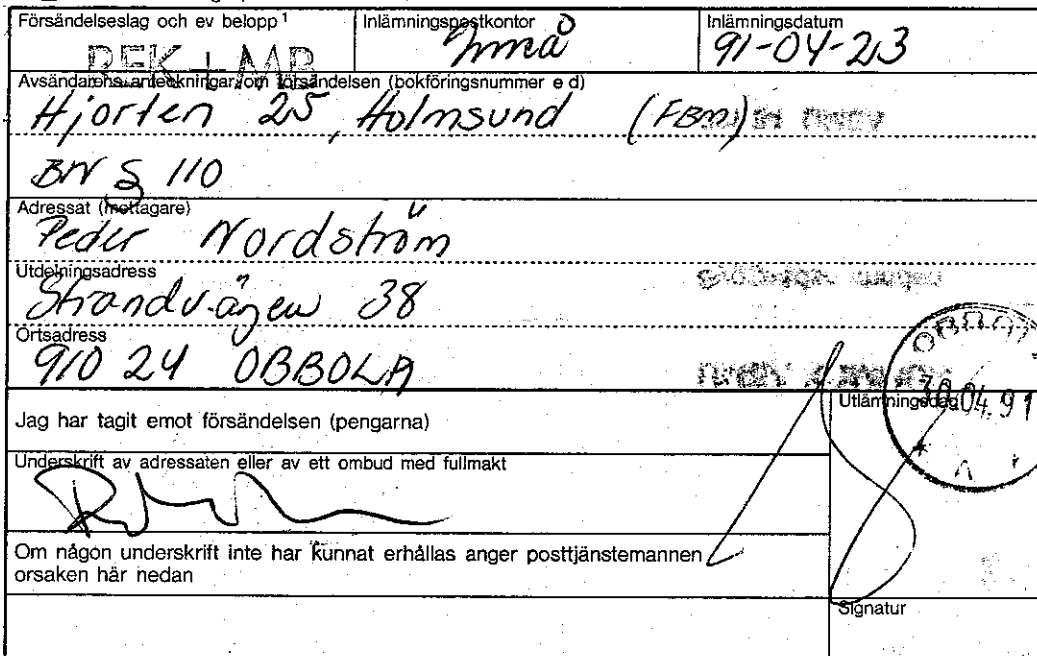 Försändelseslag och ev belopp¹
REK + MB
Inlämningspostkontor
Umeå
Inlämningsdatum
91-04-23
Avsändarens anteckningar om försändelsen (bokföringsnummer e d)
Hjorten 25, Holmsund (FBM)
BN § 110
Adressat (mottagare)
Peder Nordström
Utdelningsadress
Strandvägen 38
Ortsadress
910 24 OBBOLA
OBBOLA
30.04.91
Utlämningsdag
Jag har tagit emot försändelsen (pengarna)
Underskrift av adressaten eller av ett ombud med fullmakt
Om någon underskrift inte har kunnat erhållas anger posttjänstemannen
orsaken här nedan
Signatur